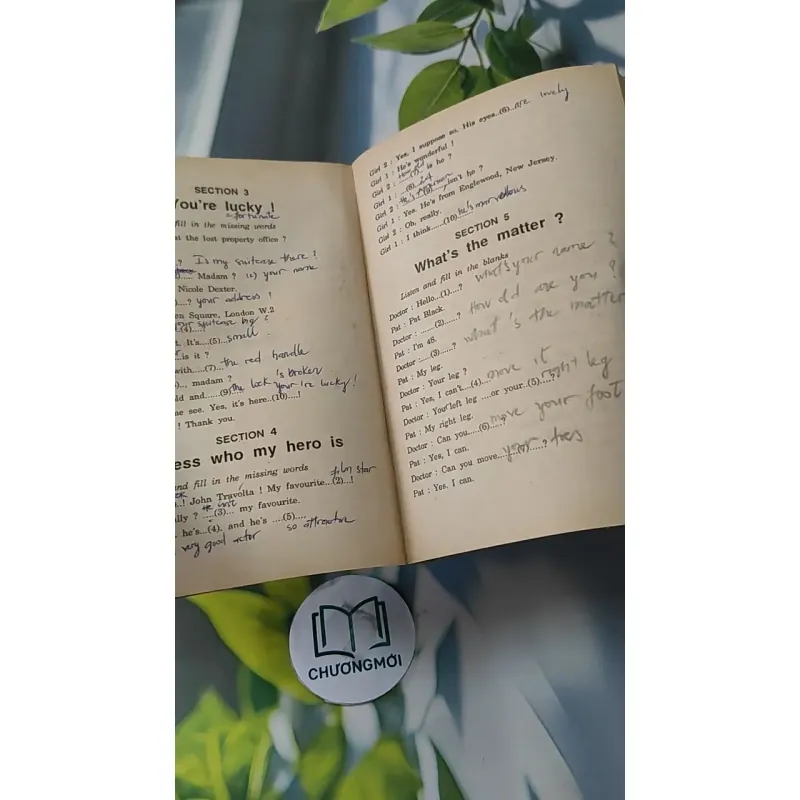 SECTION 3
You're lucky !
fortunate
fill in the missing words
at the lost property office ?
? Is my suitcase there !
Madam ? (2) your name
Nicole Dexter.
)....? your address !
on Square, London W.2
your suitcase big ?
....(4)....?
t. It's....(5) small
is it ?
with.....(7)... the red handle
)... madam ?
ld and.....(9) the lock 's broken
your're lucky!
me see. Yes, it's here..(10)....!
! Thank you.
SECTION 4
ess who my hero is
and fill in the missing words
film star
..! John Travolta ! My favourite...(2)...!
the best
ally ? ....(3)... my favourite.
he's...(4). and he's ....(5)....
very good actor so attractive
Girl 2 : Yes, I suppose so. His eyes..(6)..are lovely
Girl 1 : He's wonderful !
How old
Girl 2 : ....(7)... is he ?
Girl 1 : ...(8)...
He's American
Girl 2 : ....(9)..., isn't he ?
Girl 1 : Yes. He's from Englewood, New Jersey.
Girl 2 : Oh, really.
Girl 1 : I think.....(10) he's marvellous
SECTION 5
What's the matter ?
Listen and fill in the blanks
Doctor : Hello...(1)....? what's your name ?
Pat : Pat Black.
Doctor : ......(2).....? How old are you ?
Pat : I'm 48.
Doctor :....(3).....? what 's the matter
Pat : My leg.
Doctor : Your leg ?
Pat : Yes, I can't...(4).... move it
Doctor : Your left leg ....or your..(5)....? right leg
Pat : My right leg.
Doctor : Can you.....(6).....? move your foot
Pat : Yes, I can.
Doctor : Can you move.....(7).....? your toes
Pat : Yes, I can.
CHƯƠNGMỚI